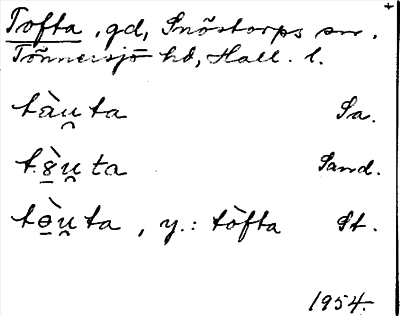 Tofta, gd, Snöstorps sn.
Tönnersjö hd, Hall. l.
tàu̯ta Sa.
t8̲̀u̯ta Sand.
tɵ̲̀u̯ta, y.: tòfta St.
1954.